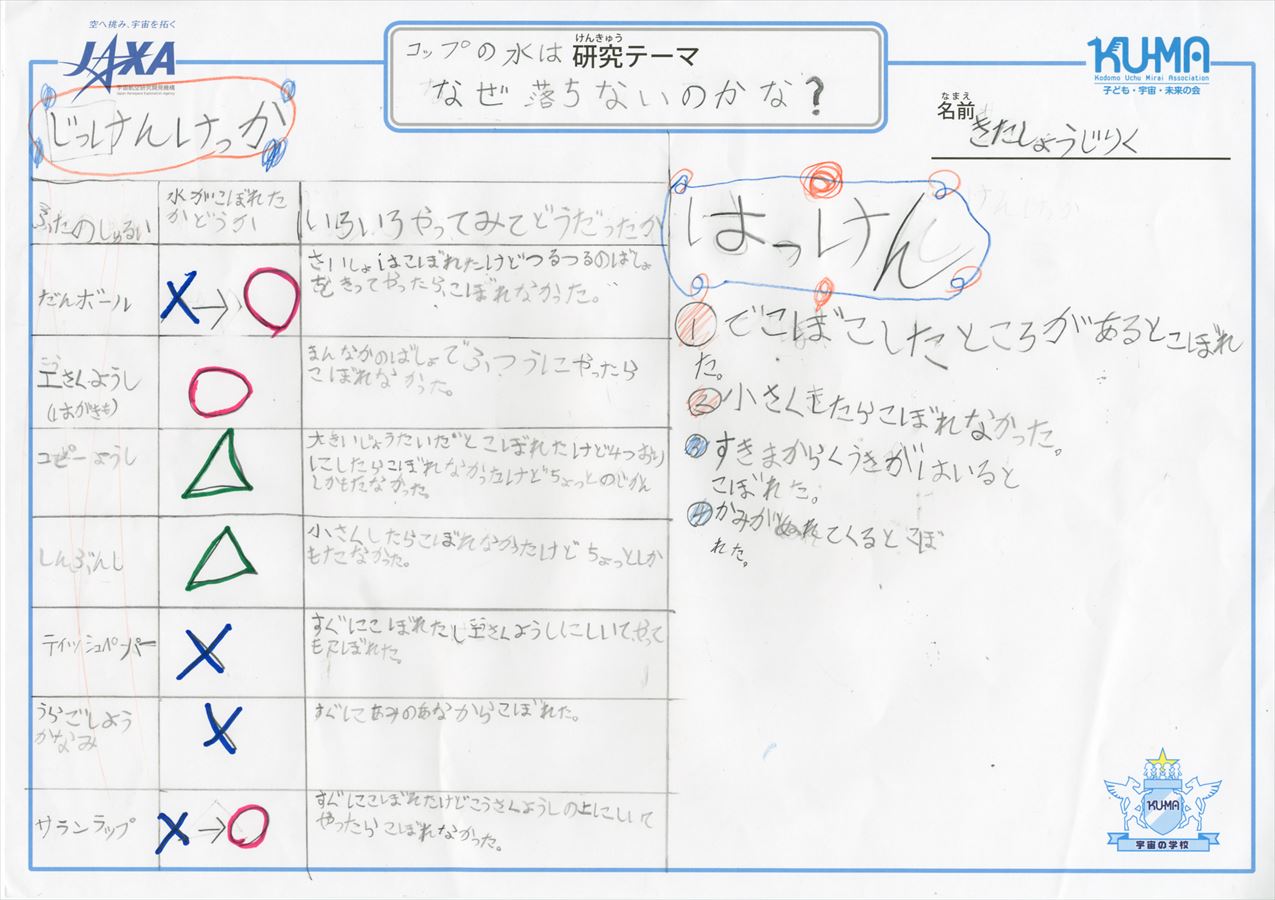 空へ挑み、宇宙を拓く
JAXA
宇宙航空研究開発機構
Japan Aerospace Exploration Agency
けんきゅう
コップの水は 研究テーマ
なぜ落ちないのかな?
KU-MA
Kodomo Uchu Mirai Association
子ども・宇宙・未来の会
なまえ
名前 きたしょうじりく
じっけんけっか
ふたのしゅるい
水がこぼれた
かどうか
いろいろやってみてどうだったか
だんボール
X→○
さいしょはこぼれたけどつるつるのばしょ
をきってやったら、こぼれなかった。
こう
工さくようし
(はがきも)
○
まんなかのばしょでふつうにやったら
こぼれなかった。
コピーようし
△
大きいじょうたいだとこぼれたけど4つおり
にしたらこぼれなかったけどちょっとのじかん
しかもたなかった。
しんぶんし
△
小さくしたらこぼれなかったけどちょっとしか
もたなかった。
ティッシュペーパー
X
すぐにこぼれたし工さくようしにしいて、やって
もこぼれた。
うらごしよう
かなみ
X
すぐにあみのあなからこぼれた。
サランラップ
X→○
すぐにこぼれたけどこうさくようしの上にしいて
やったらこぼれなかった。
はっけん
① でこぼこしたところがあるとこぼれ
た。
② 小さくしたらこぼれなかった。
③ すきまからくうきがはいると
こぼれた。
④ かみがぬれてくるとこぼ
れた。
KU-MA
宇宙の学校